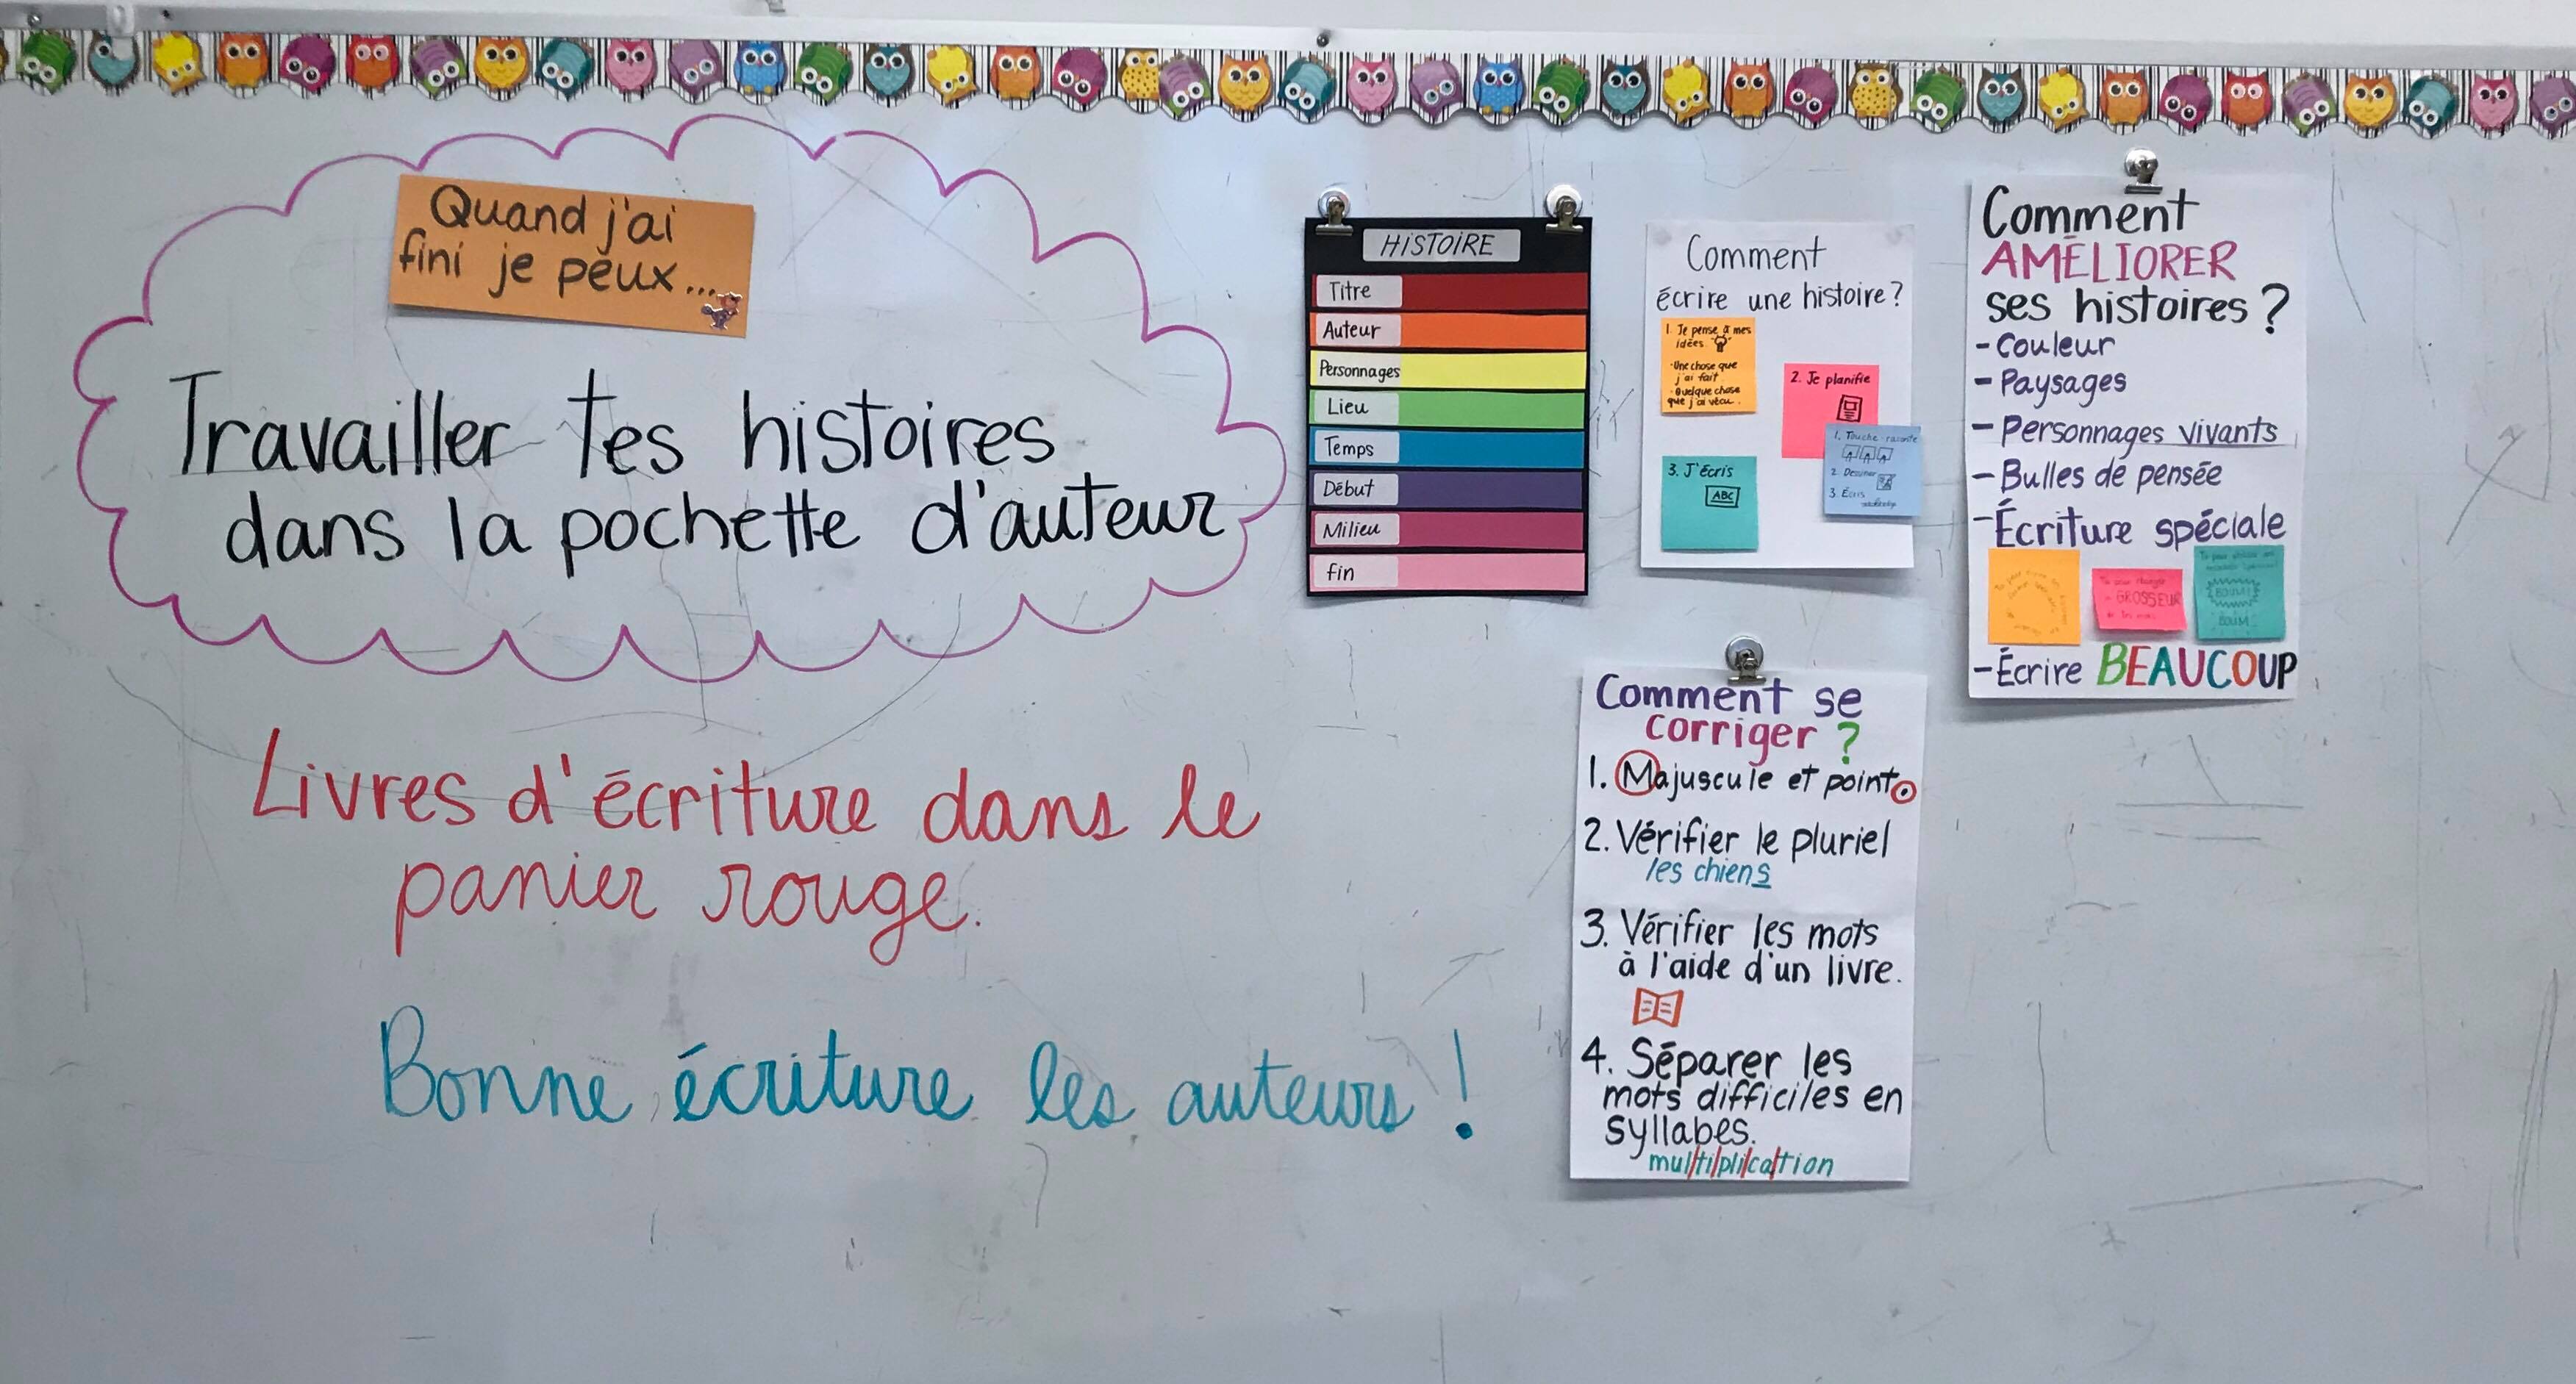 Quand j'ai
fini je peux...
Travailler tes histoires
dans la pochette d'auteur
Livres d'écriture dans le
panier rouge.
Bonne écriture les auteurs !
HISTOIRE
Titre
Auteur
Personnages
Lieu
Temps
Début
Milieu
Fin
Comment
écrire une histoire?
1. Je pense à mes
idées
-Une chose que
j'ai fait
-Quelque chose
que j'ai vécu.
2. Je planifie
1. Touche-raconte
2. Dessiner
3. Écris
3. J'écris
ABC
Comment
AMÉLIORER
ses histoires?
-Couleur
-Paysages
-Personnages vivants
-Bulles de pensée
-Écriture spéciale
GROSSEUR
BOUM
-Écrire BEAUCOUP
Comment se
corriger?
1. Majuscule et point.
2. Vérifier le pluriel
les chiens
3. Vérifier les mots
à l'aide d'un livre.
4. Séparer les
mots difficiles en
syllabes.
mul/ti/pli/ca/tion